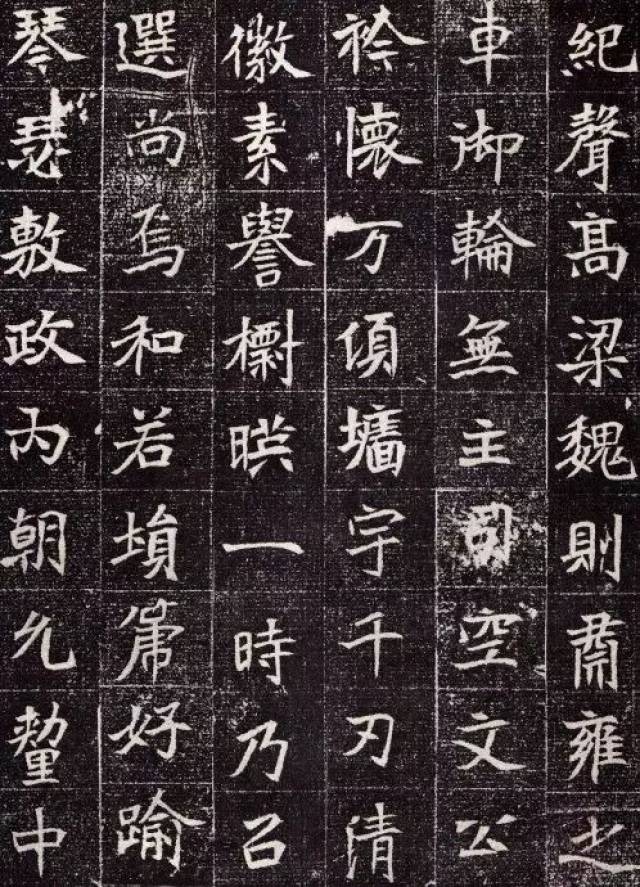 紀聲髙梁魏則肅雍之
車御輪無主司空文公
衿懷万頃墻宇千刃清
徽素譽標暎一時乃召
選尚焉和若塤箎好踰
琴瑟敷政内朝允釐中